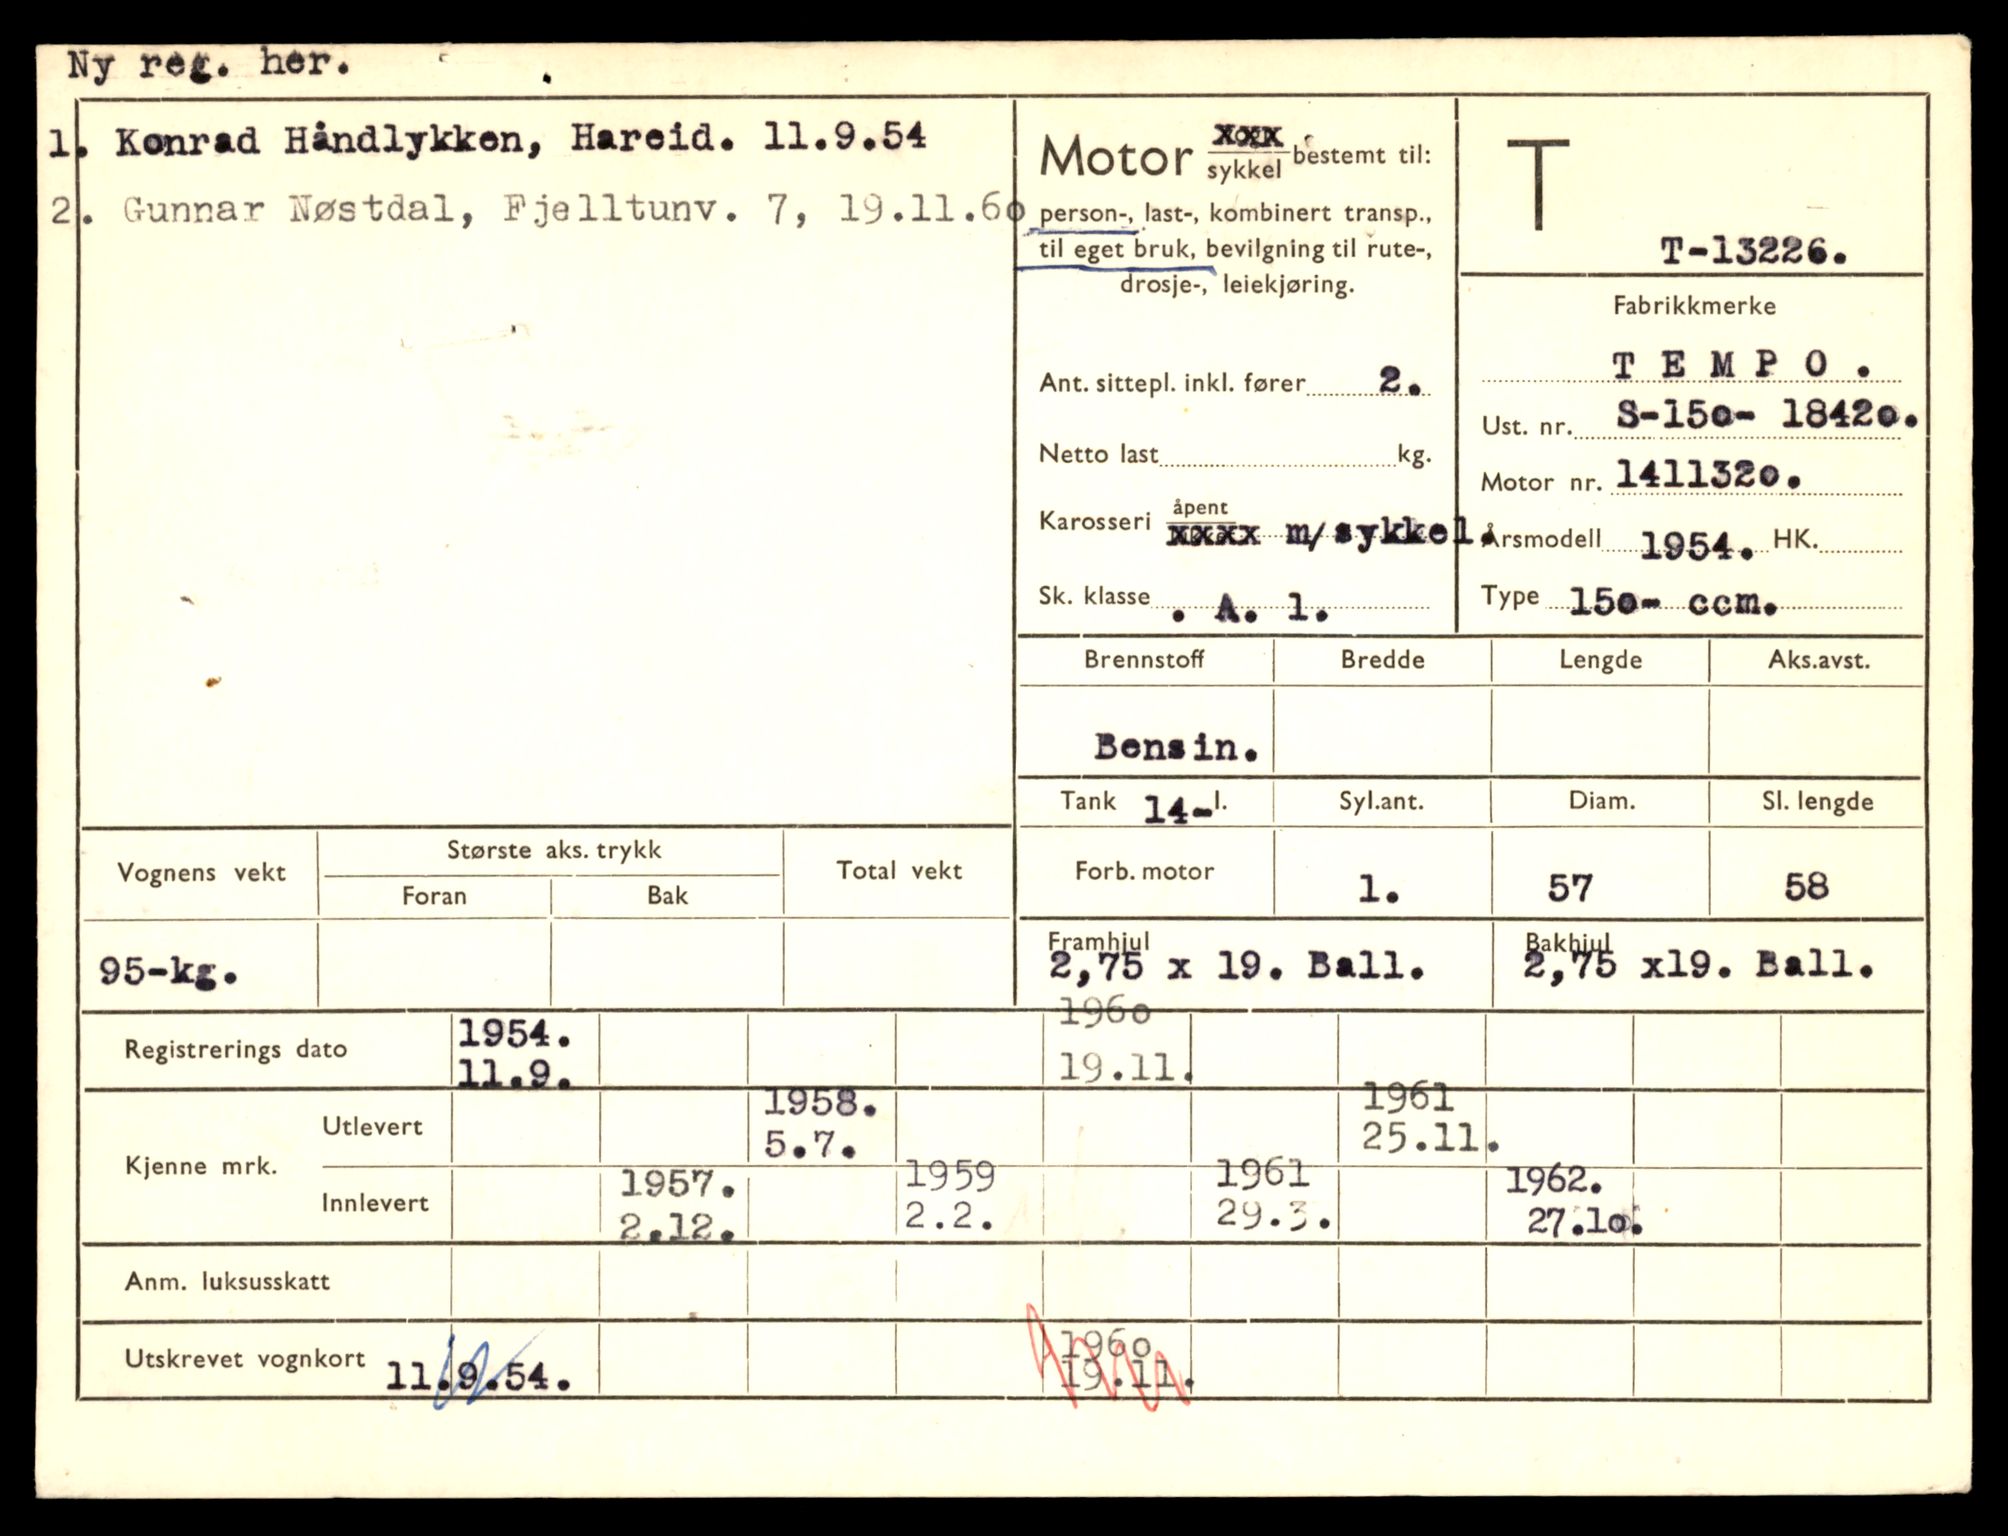 Ny reg. her.
1. Konrad Håndlykken, Hareid. 11.9.54
2. Gunnar Nøstdal, Fjelltunv. 7, 19.11.6o
Motor xxx
sykkel bestemt til:
person-, last-, kombinert transp.,
til eget bruk, bevilgning til rute-,
drosje-, leiekjøring.
Ant. sittepl. inkl. fører 2.
Netto last kg.
Karosseri åpent
xxxx m/sykkel.
Sk. klasse . A. 1.
T
T-13226.
Fabrikkmerke
T E M P O .
Ust. nr. S-15o- 1842o.
Motor nr. 141132o.
Årsmodell 1954. HK.
Type 15o- ccm.
Brennstoff Bredde Lengde Aks.avst.
Bensin.
Tank 14- l. Syl.ant. Diam. Sl. lengde
Forb. motor 1. 57 58
Framhjul Bakhjul
2,75 x 19. Ball. 2,75 x19. Ball.
Vognens vekt Største aks. trykk Total vekt
Foran Bak
95-kg.
Registrerings dato 1954. 196o
11.9. 19.11.
Kjenne mrk.
Utlevert 1958. 1961
5.7. 25.11.
Innlevert 1957. 1959 1961 1962.
2.12. 2.2. 29.3. 27.1o.
Anm. luksusskatt
Utskrevet vognkort 11.9.54. 196o
19.11.